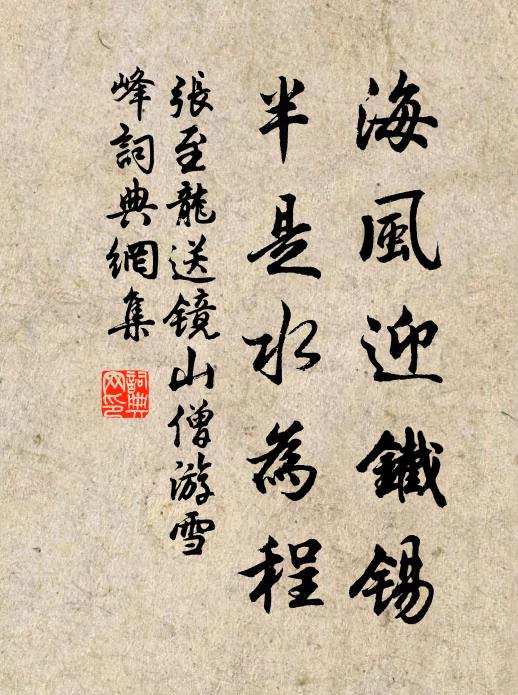 海風迎鐵錫
半是水為程
張至龍送镜山僧游雪
峰詞典網集
詞典
网印